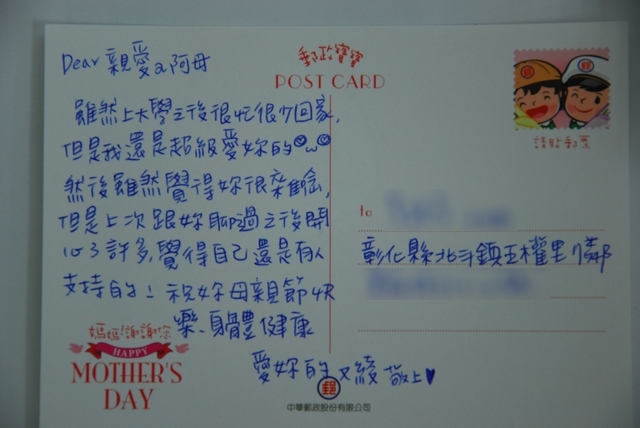 郵政寶寶
POST CARD
郵
請貼郵票
Dear 親愛a阿母
雖然上大學之後很忙很少回家,
但是我還是超級愛妳的
然後雖然覺得妳很碎碎唸,
但是上次跟妳聊過之後開
心了許多,覺得自己還是有人
支持的! 祝妳母親節快
樂、身體健康
愛妳的 文綾 敬上♥
to
彰化縣北斗鎮五權里 鄰
媽媽!謝謝您
HAPPY
MOTHER'S
DAY
郵
中華郵政股份有限公司